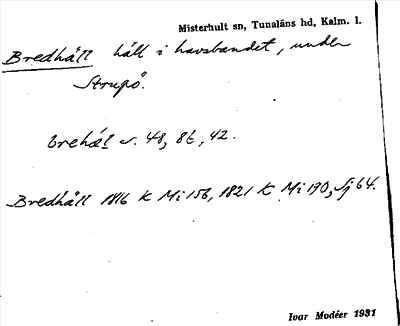 Misterhult sn, Tunaläns hd, Kalm. l.
Bredhäll häll i havsbandet, under
Strupö.
brehæl s. 48, 86, 42.
Bredhäll 1816 K Mi 156, 1821 K Mi 190, Sj 64.
Ivar Modéer 1931